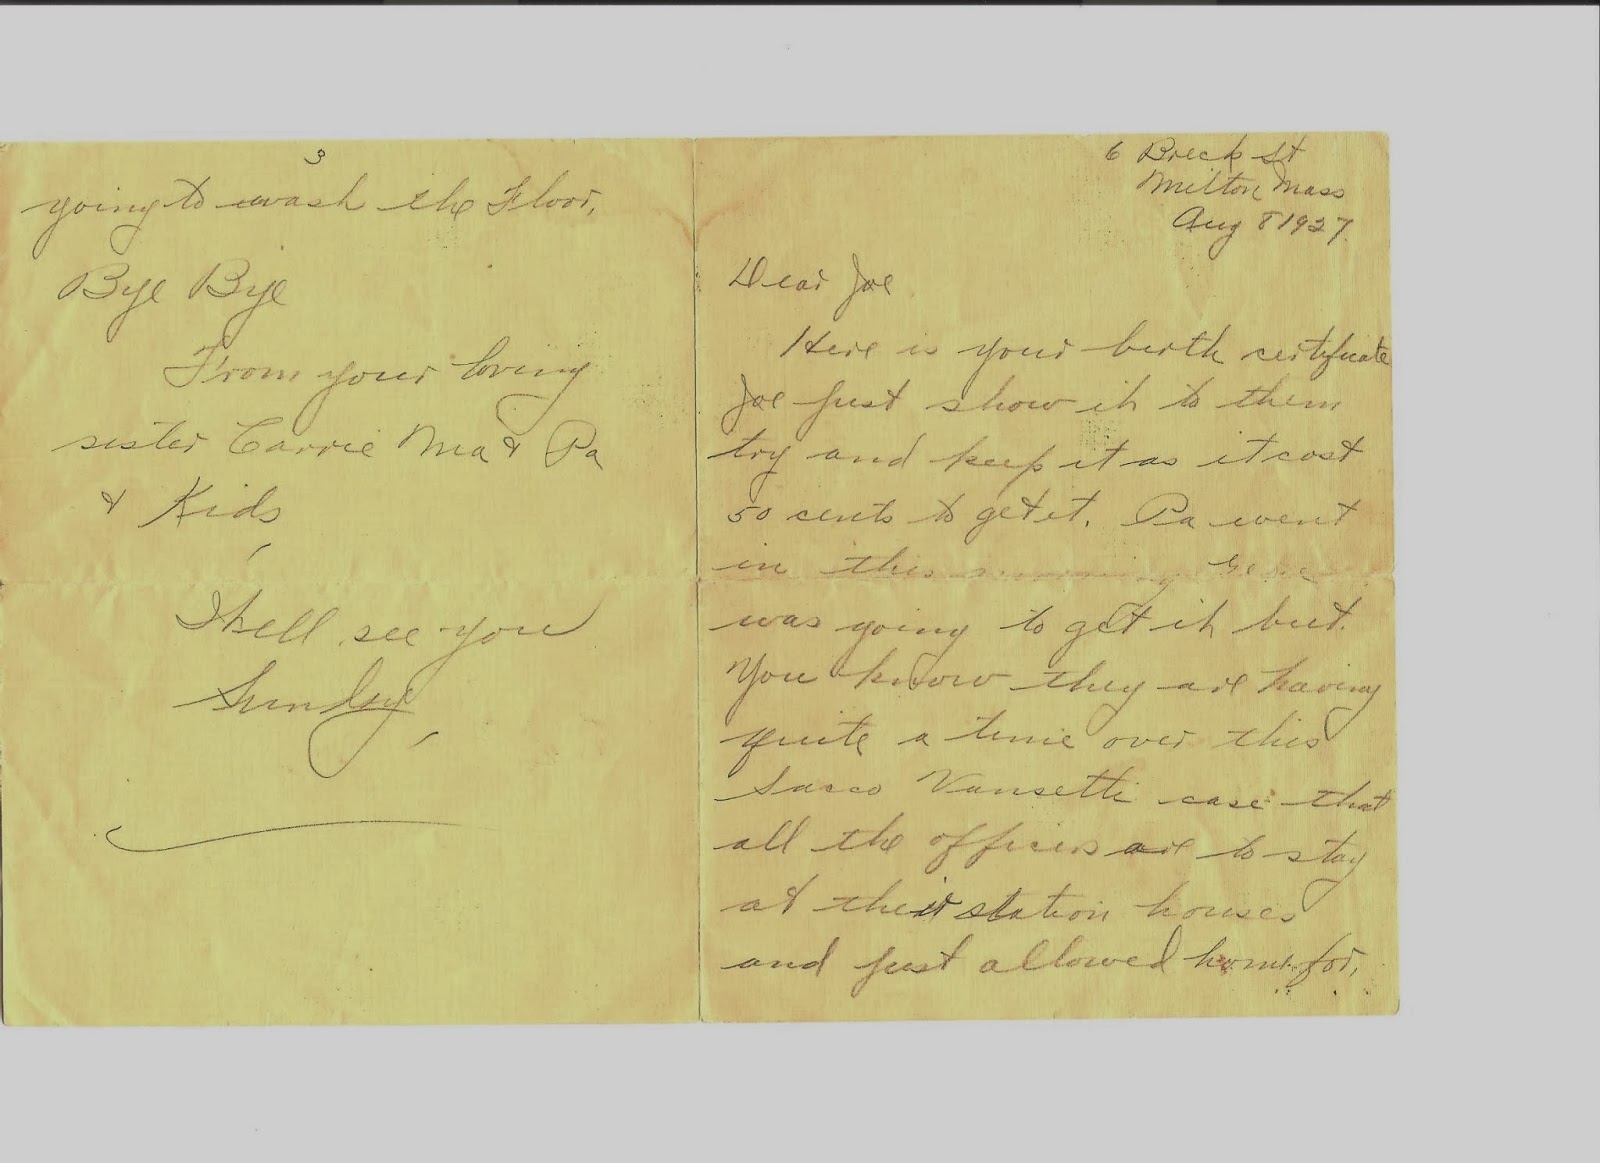 6 Breck St
Milton Mass
Aug 8 1927.
Dear Joe
Here is your birth certificate
Joe just show it to them
try and keep it as it cost
50 cents to get it. Pa went
in this morning Gene
was going to get it but.
You know they are having
quite a time over this
Sacco Vansetti case that
all the officers are to stay
at their station houses
and just allowed home for,
3
going to wash the Floor,
Bye Bye
From your loving
sister Carrie Ma & Pa
& Kids,
I hell see you
Sunday,